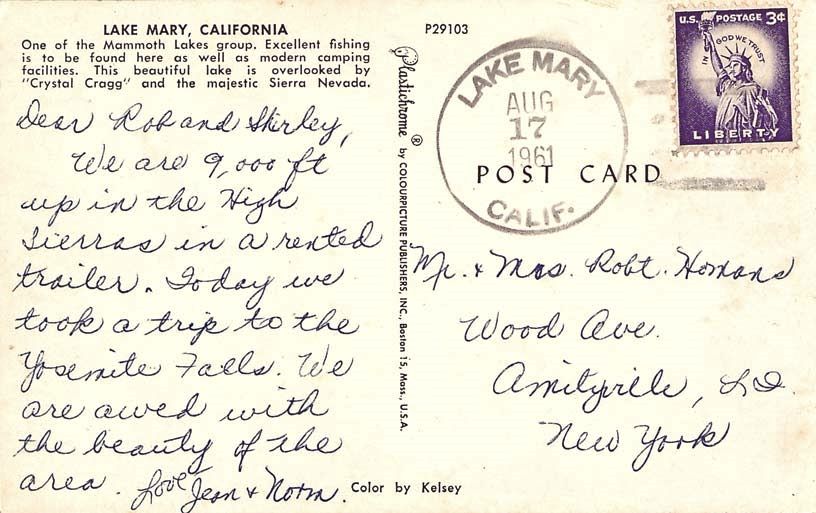 LAKE MARY, CALIFORNIA
One of the Mammoth Lakes group. Excellent fishing
is to be found here as well as modern camping
facilities. This beautiful lake is overlooked by
"Crystal Cragg" and the majestic Sierra Nevada.
Dear Rob and Shirley,
We are 9,000 ft
up in the High
Sierras in a rented
trailer. Today we
took a trip to the
Yosemite Falls. We
are awed with
the beauty of the
area. Love Jean & Norm.
Plastichrome ® by COLOURPICTURE PUBLISHERS, INC., Boston 15, Mass., U.S.A.
Color by Kelsey
P29103
LAKE MARY
AUG
17
1961
CALIF.
U.S. POSTAGE 3¢
IN GOD WE TRUST
LIBERTY
POST CARD
Mr. & Mrs. Robt. Homans
Wood Ave.
Amityville, L.I.
New York